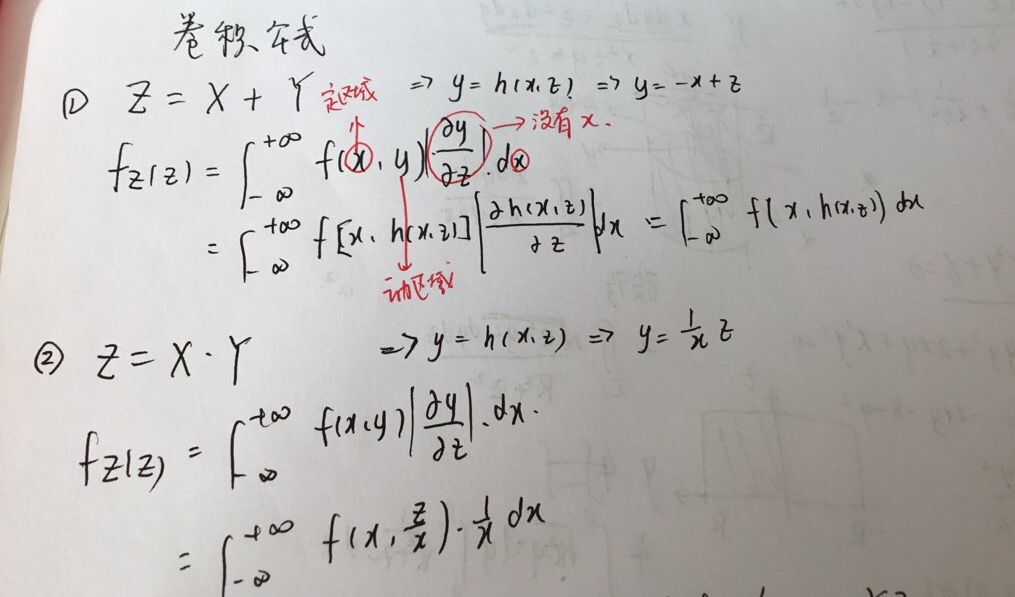 卷积公式
① Z = X + Y 定区域 => y = h(x,z) => y = -x + z
f_Z(z) = ∫_{-∞}^{+∞} f(x, y) |∂y/∂z| · dx → 没有 x.
= ∫_{-∞}^{+∞} f[x, h(x,z)] |∂h(x,z)/∂z| dx = ∫_{-∞}^{+∞} f(x, h(x,z)) dx
动区域
② Z = X · Y => y = h(x,z) => y = 1/x z
f_Z(z) = ∫_{-∞}^{+∞} f(x,y) |∂y/∂z| · dx.
= ∫_{-∞}^{+∞} f(x, z/x) · 1/x dx